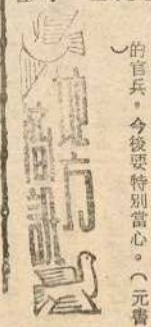 的官兵，今後要特別當心。（元書
）
地方
通訊